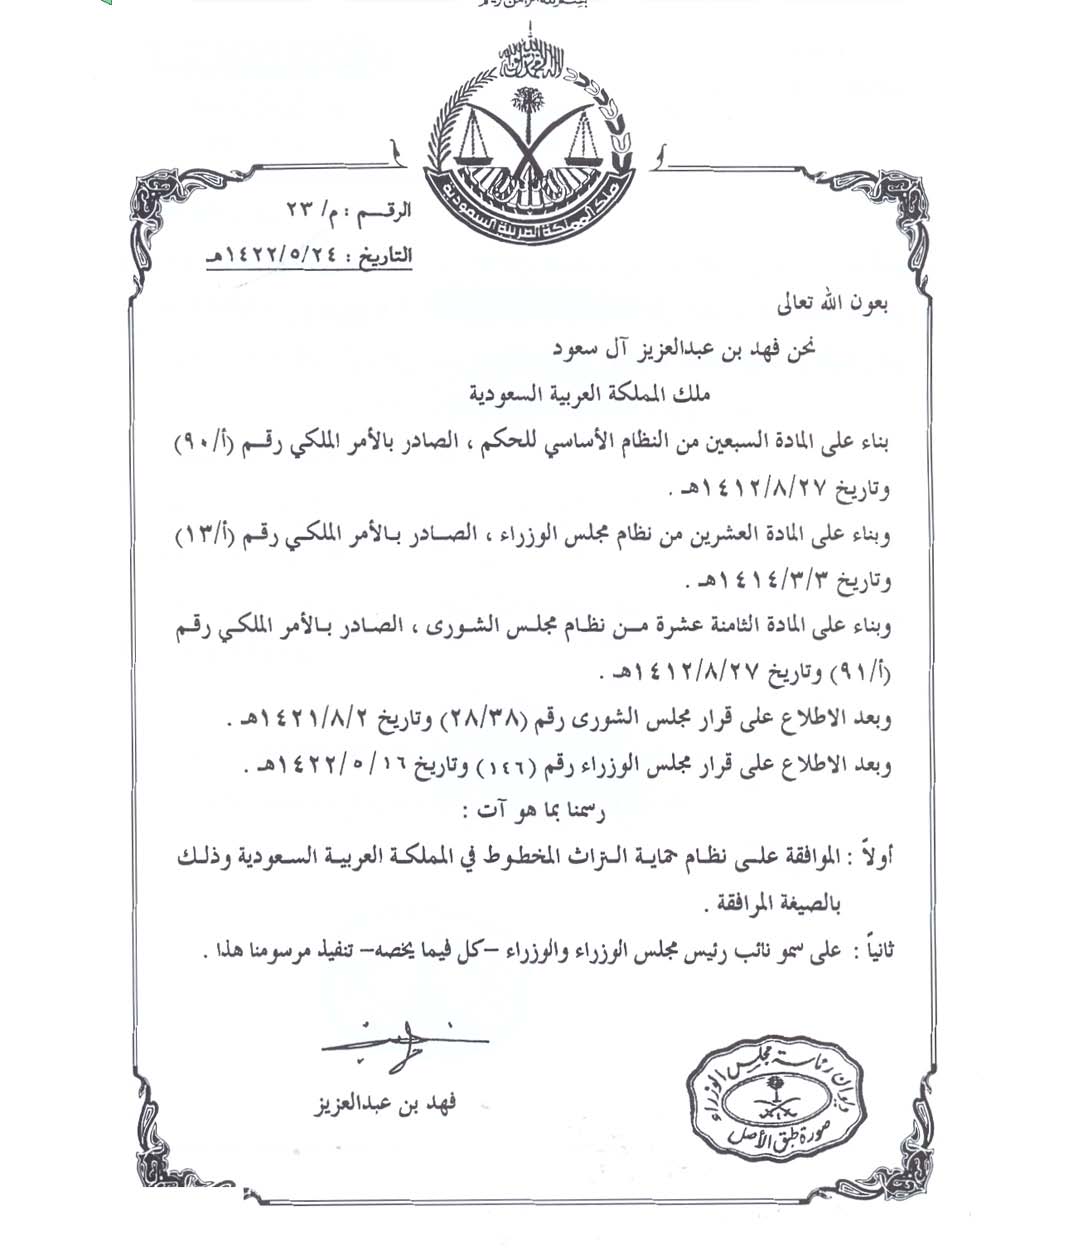 الرقم : م/ ٢٣
التاريخ : ١٤٢٢/٥/٢٤هـ
ملك المملكة العربية السعودية
بعون الله تعالى
نحن فهد بن عبدالعزيز آل سعود
ملك المملكة العربية السعودية
بناء على المادة السبعين من النظام الأساسي للحكم ، الصادر بالأمر الملكي رقم (أ/٩٠)
وتاريخ ١٤١٢/٨/٢٧هـ .
وبناء على المادة العشرين من نظام مجلس الوزراء ، الصادر بالأمر الملكي رقم (أ/١٣)
وتاريخ ١٤١٤/٣/٣هـ .
وبناء على المادة الثامنة عشرة من نظام مجلس الشورى ، الصادر بالأمر الملكي رقم
(أ/٩١) وتاريخ ١٤١٢/٨/٢٧هـ .
وبعد الاطلاع على قرار مجلس الشورى رقم (٢٨/٣٨) وتاريخ ١٤٢١/٨/٢هـ .
وبعد الاطلاع على قرار مجلس الوزراء رقم (١٤٦) وتاريخ ١٤٢٢/٥/١٦هـ .
رسمنا بما هو آت :
أولاً : الموافقة على نظام حماية التراث المخطوط في المملكة العربية السعودية وذلك
بالصيغة المرافقة .
ثانياً : على سمو نائب رئيس مجلس الوزراء والوزراء –كل فيما يخصه– تنفيذ مرسومنا هذا .
فهد بن عبدالعزيز
ديوان رئاسة مجلس الوزراء
صورة طبق الأصل